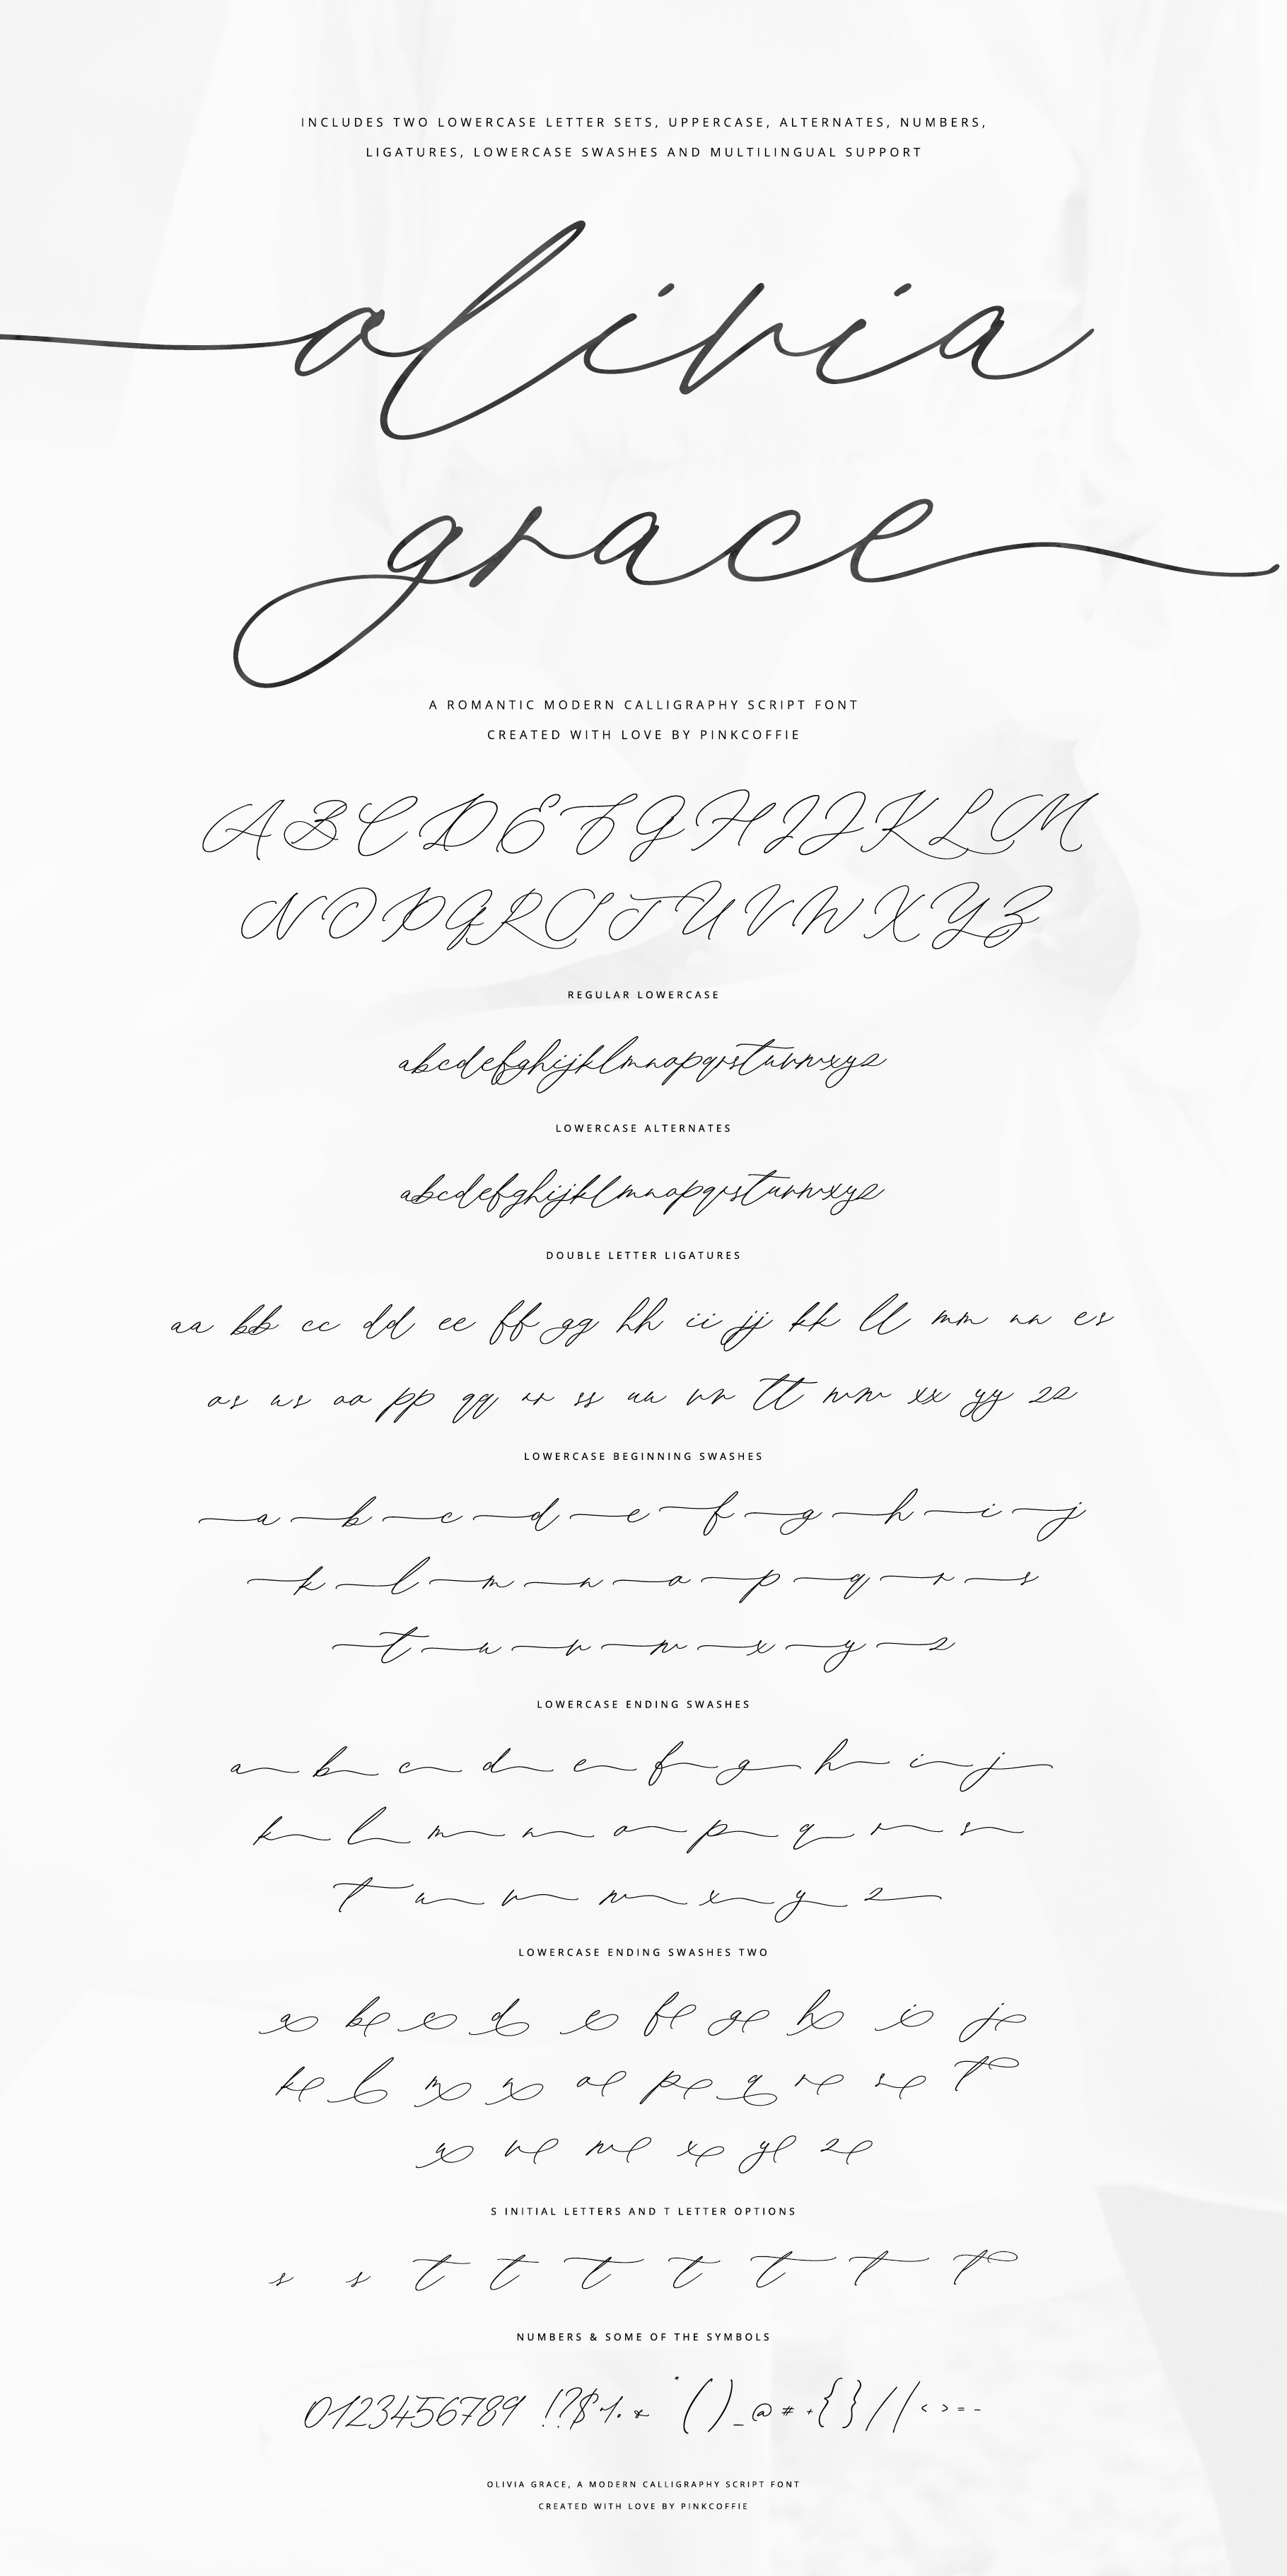 INCLUDES TWO LOWERCASE LETTER SETS, UPPERCASE, ALTERNATES, NUMBERS,
LIGATURES, LOWERCASE SWASHES AND MULTILINGUAL SUPPORT
olivia
grace
A ROMANTIC MODERN CALLIGRAPHY SCRIPT FONT
CREATED WITH LOVE BY PINKCOFFIE
A B C D E F G H I J K L M
N O P Q R S T U V W X Y Z
REGULAR LOWERCASE
abcdefghijklmnopqrstuvwxyz
LOWERCASE ALTERNATES
abcdefghijklmnopqrstuvwxyz
DOUBLE LETTER LIGATURES
aa bb cc dd ee ff gg hh ii jj kk ll mm nn es
os us oo pp qq rr ss uu vv tt ww xx yy zz
LOWERCASE BEGINNING SWASHES
a b c d e f g h i j
k l m n o p q r s
t u v w x y z
LOWERCASE ENDING SWASHES
a b c d e f g h i j
k l m n o p q r s
t u v w x y z
LOWERCASE ENDING SWASHES TWO
a b c d e f g h i j
k l m n o p q r s t
u v w x y z
S INITIAL LETTERS AND T LETTER OPTIONS
s s t t t t t t t
NUMBERS & SOME OF THE SYMBOLS
0123456789 !?$%.& * ( ) _ @ # + { } / / < > = -
OLIVIA GRACE, A MODERN CALLIGRAPHY SCRIPT FONT
CREATED WITH LOVE BY PINKCOFFIE